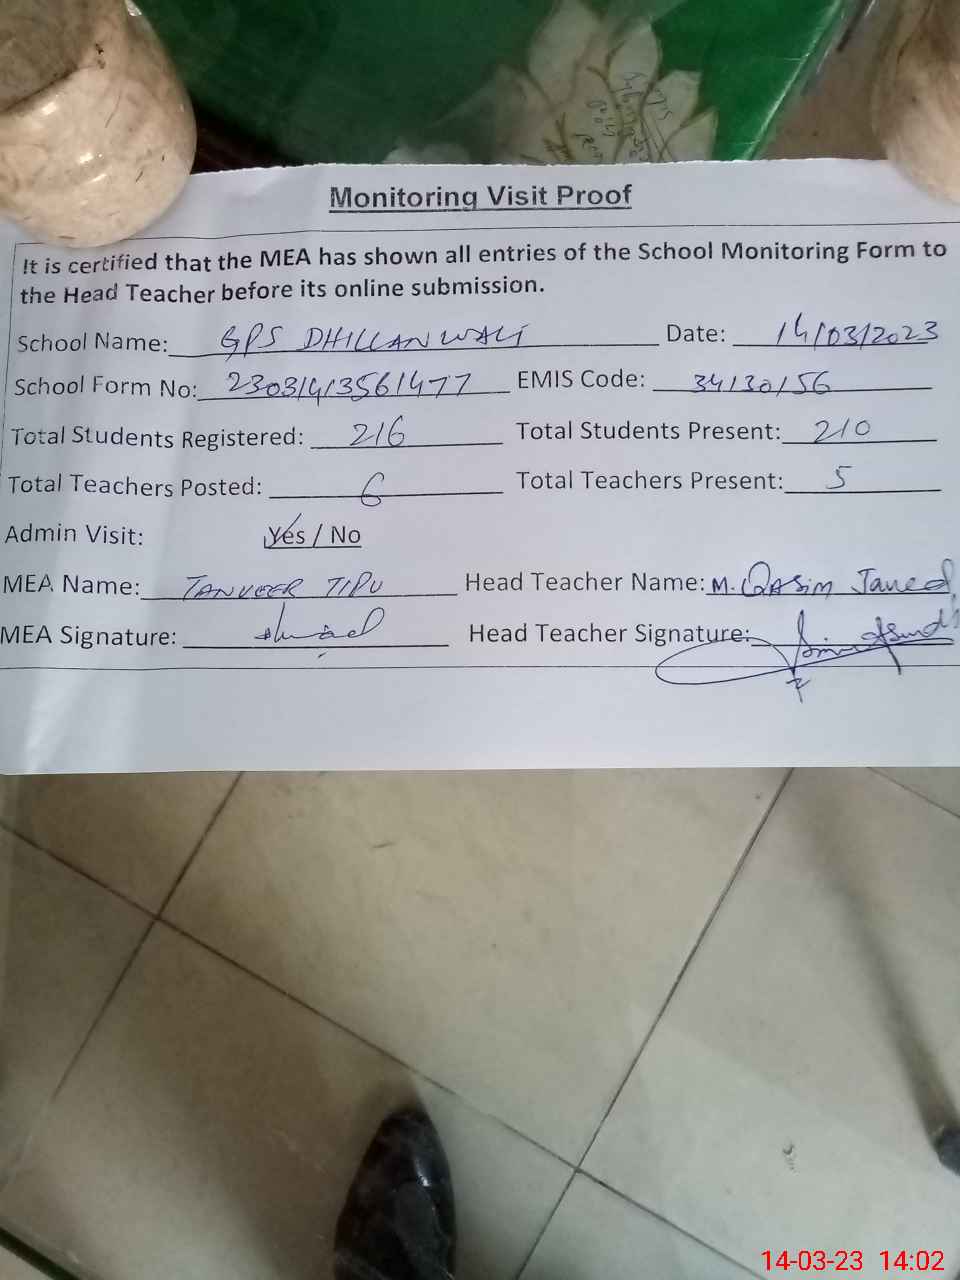 Monitoring Visit Proof
It is certified that the MEA has shown all entries of the School Monitoring Form to
the Head Teacher before its online submission.
School Name: GPS DHILLANWALI Date: 14/03/2023
School Form No: 2303141356/477 EMIS Code: 34130156
Total Students Registered: 216 Total Students Present: 210
Total Teachers Posted: 6 Total Teachers Present: 5
Admin Visit: Yes / No
MEA Name: TANVEER TIPU Head Teacher Name: M. QASim Javed
MEA Signature: Head Teacher Signature:
14-03-23 14:02